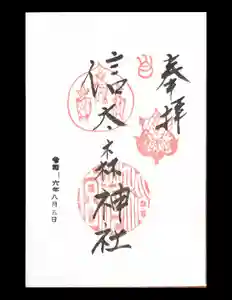 奉拝
信太森神社
令和六年八月五日